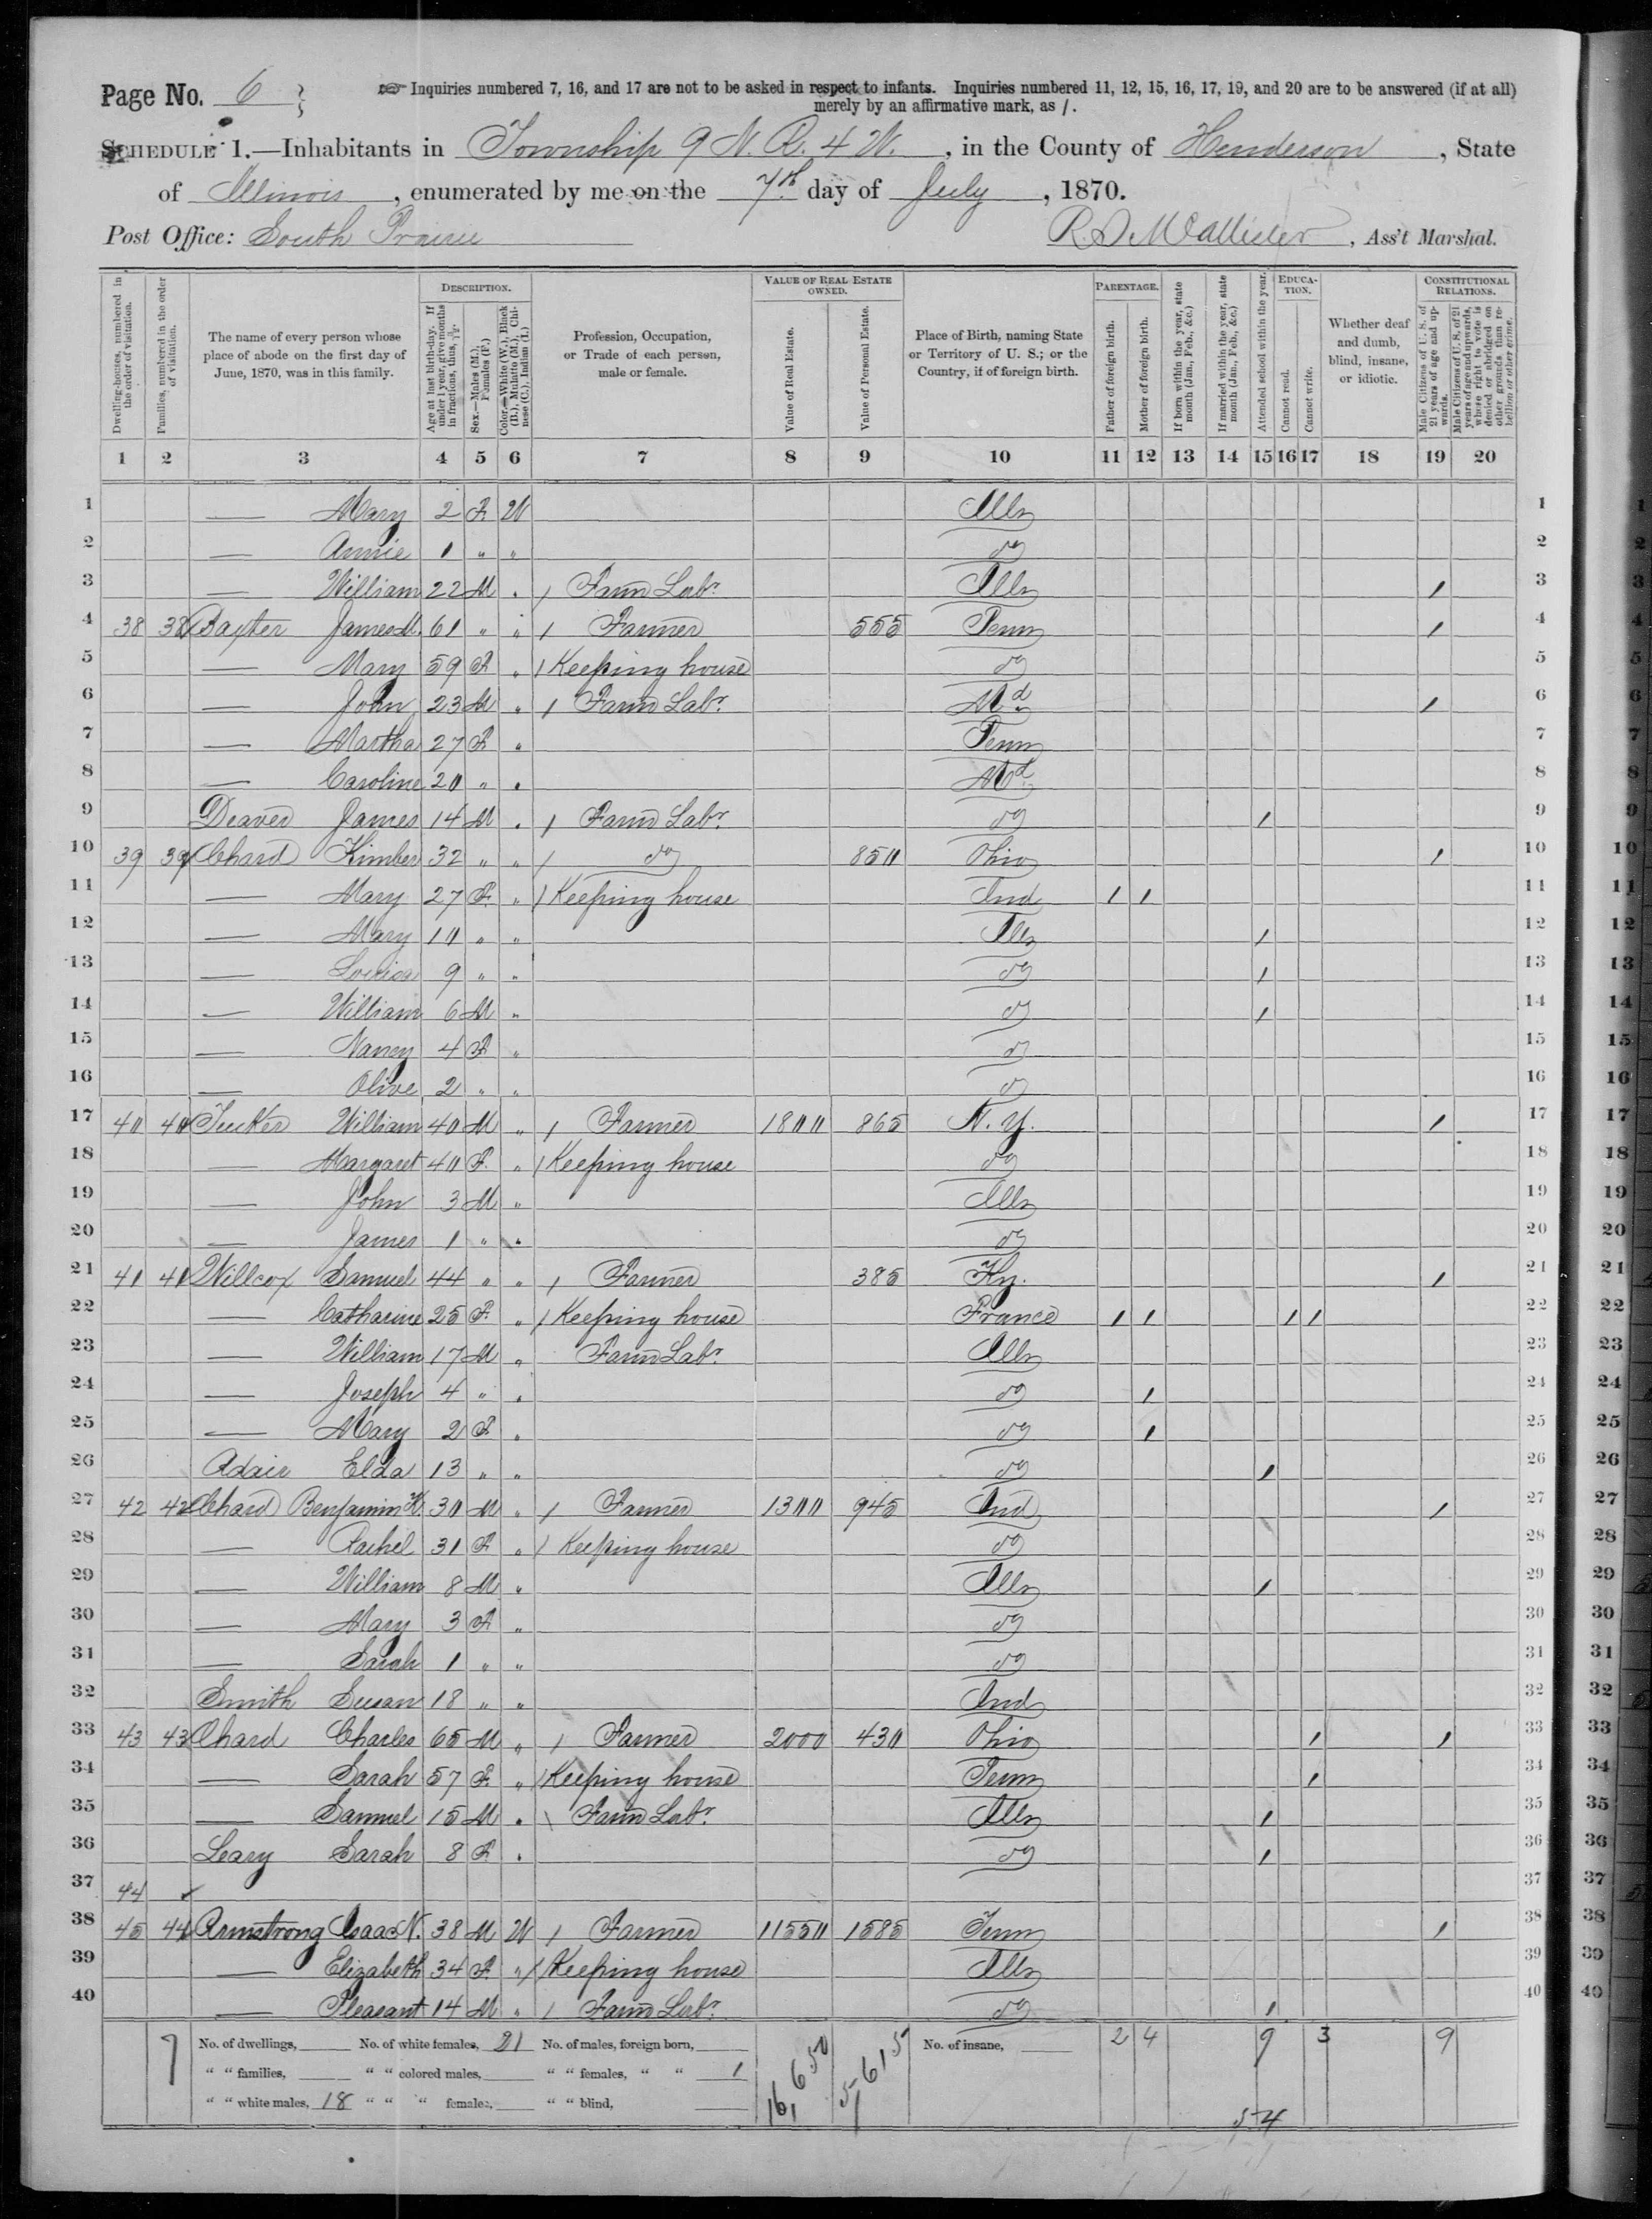 Page No. 6
☞ Inquiries numbered 7, 16, and 17 are not to be asked in respect to infants. Inquiries numbered 11, 12, 15, 16, 17, 19, and 20 are to be answered (if at all)
merely by an affirmative mark, as /.
SCHEDULE 1.—Inhabitants in Township 9 N. R. 4 W., in the County of Henderson, State
of Illinois, enumerated by me on the 7th day of July, 1870.
Post Office: South Prairie
R. S. McCallister, Ass't Marshal.
DESCRIPTION.
VALUE OF REAL ESTATE OWNED.
PARENTAGE.
EDUCATION.
CONSTITUTIONAL RELATIONS.
Dwelling-houses, numbered in the order of visitation.
Families, numbered in the order of visitation.
The name of every person whose place of abode on the first day of June, 1870, was in this family.
Age at last birth-day. If under 1 year, give months in fractions, thus, 3/12.
Sex.—Males (M.), Females (F.)
Color.—White (W.), Black (B.), Mulatto (M.), Chinese (C.), Indian (I.)
Profession, Occupation, or Trade of each person, male or female.
Value of Real Estate.
Value of Personal Estate.
Place of Birth, naming State or Territory of U. S.; or the Country, if of foreign birth.
Father of foreign birth.
Mother of foreign birth.
If born within the year, state month (Jan., Feb., &c.)
If married within the year, state month (Jan., Feb., &c.)
Attended school within the year.
Cannot read.
Cannot write.
Whether deaf and dumb, blind, insane, or idiotic.
Male Citizens of U. S. of 21 years of age and upwards.
Male Citizens of U. S. of 21 years of age and upwards, whose right to vote is denied or abridged on other grounds than rebellion or other crime.
1 2 3 4 5 6 7 8 9 10 11 12 13 14 15 16 17 18 19 20
1 — Mary 2 F W Ills 1
2 — Annie 1 " " do 2
3 — William 22 M " / Farm Labr. Ills / 3
4 38 38 Baxter James M. 61 " " / Farmer 555 Penn / 4
5 — Mary 59 F " / Keeping house do 5
6 — John 23 M " / Farm Labr. Md / 6
7 — Martha 27 F " Penn 7
8 — Caroline 20 " " Md 8
9 Deaver James 14 M " / Farm Labr. do / 9
10 39 39 Chard Kimber 32 " " / do 850 Ohio / 10
11 — Mary 27 F " / Keeping house Ind / / 11
12 — Mary 10 " " Ills / 12
13 — Louisa 9 " " do / 13
14 — William 6 M " do / 14
15 — Nancy 4 F " do 15
16 — Olive 2 " " do 16
17 40 40 Tucker William 40 M " / Farmer 1800 865 N. Y. / 17
18 — Margaret 40 F " / Keeping house do 18
19 — John 3 M " Ills 19
20 — James 1 " " do 20
21 41 41 Willcox Samuel 44 " " / Farmer 385 Ky. / 21
22 — Catharine 25 F " / Keeping house France / / / / 22
23 — William 17 M " Farm Labr. Ills 23
24 — Joseph 4 " " do / 24
25 — Mary 2 F " do / 25
26 Adair Elda 13 " " do / 26
27 42 42 Chard Benjamin K. 30 M " / Farmer 1300 945 Ind / 27
28 — Rachel 31 F " / Keeping house do 28
29 — William 8 M " Ills / 29
30 — Mary 3 F " do 30
31 — Sarah 1 " " do 31
32 Smith Susan 18 " " Ind 32
33 43 43 Chard Charles 65 M " / Farmer 2000 430 Ohio / / 33
34 — Sarah 57 F " / Keeping house Penn / 34
35 — Samuel 15 M " \ Farm Labr. Ills / 35
36 Leary Sarah 8 F " do / 36
37 44 ✓ 37
38 45 44 Armstrong Isaac N. 38 M W / Farmer 11550 1585 Tenn / 38
39 — Elizabeth 34 F " / Keeping house Ills 39
40 — Pleasant 14 M " / Farm Labr. do / 40
7 No. of dwellings, No. of white females, 21 No. of males, foreign born, 16,650 5,615 No. of insane, 2 4 9 3 9
" " families, " " colored males, " " females, " " 1
" " white males, 18 " " " females, " " blind, 54